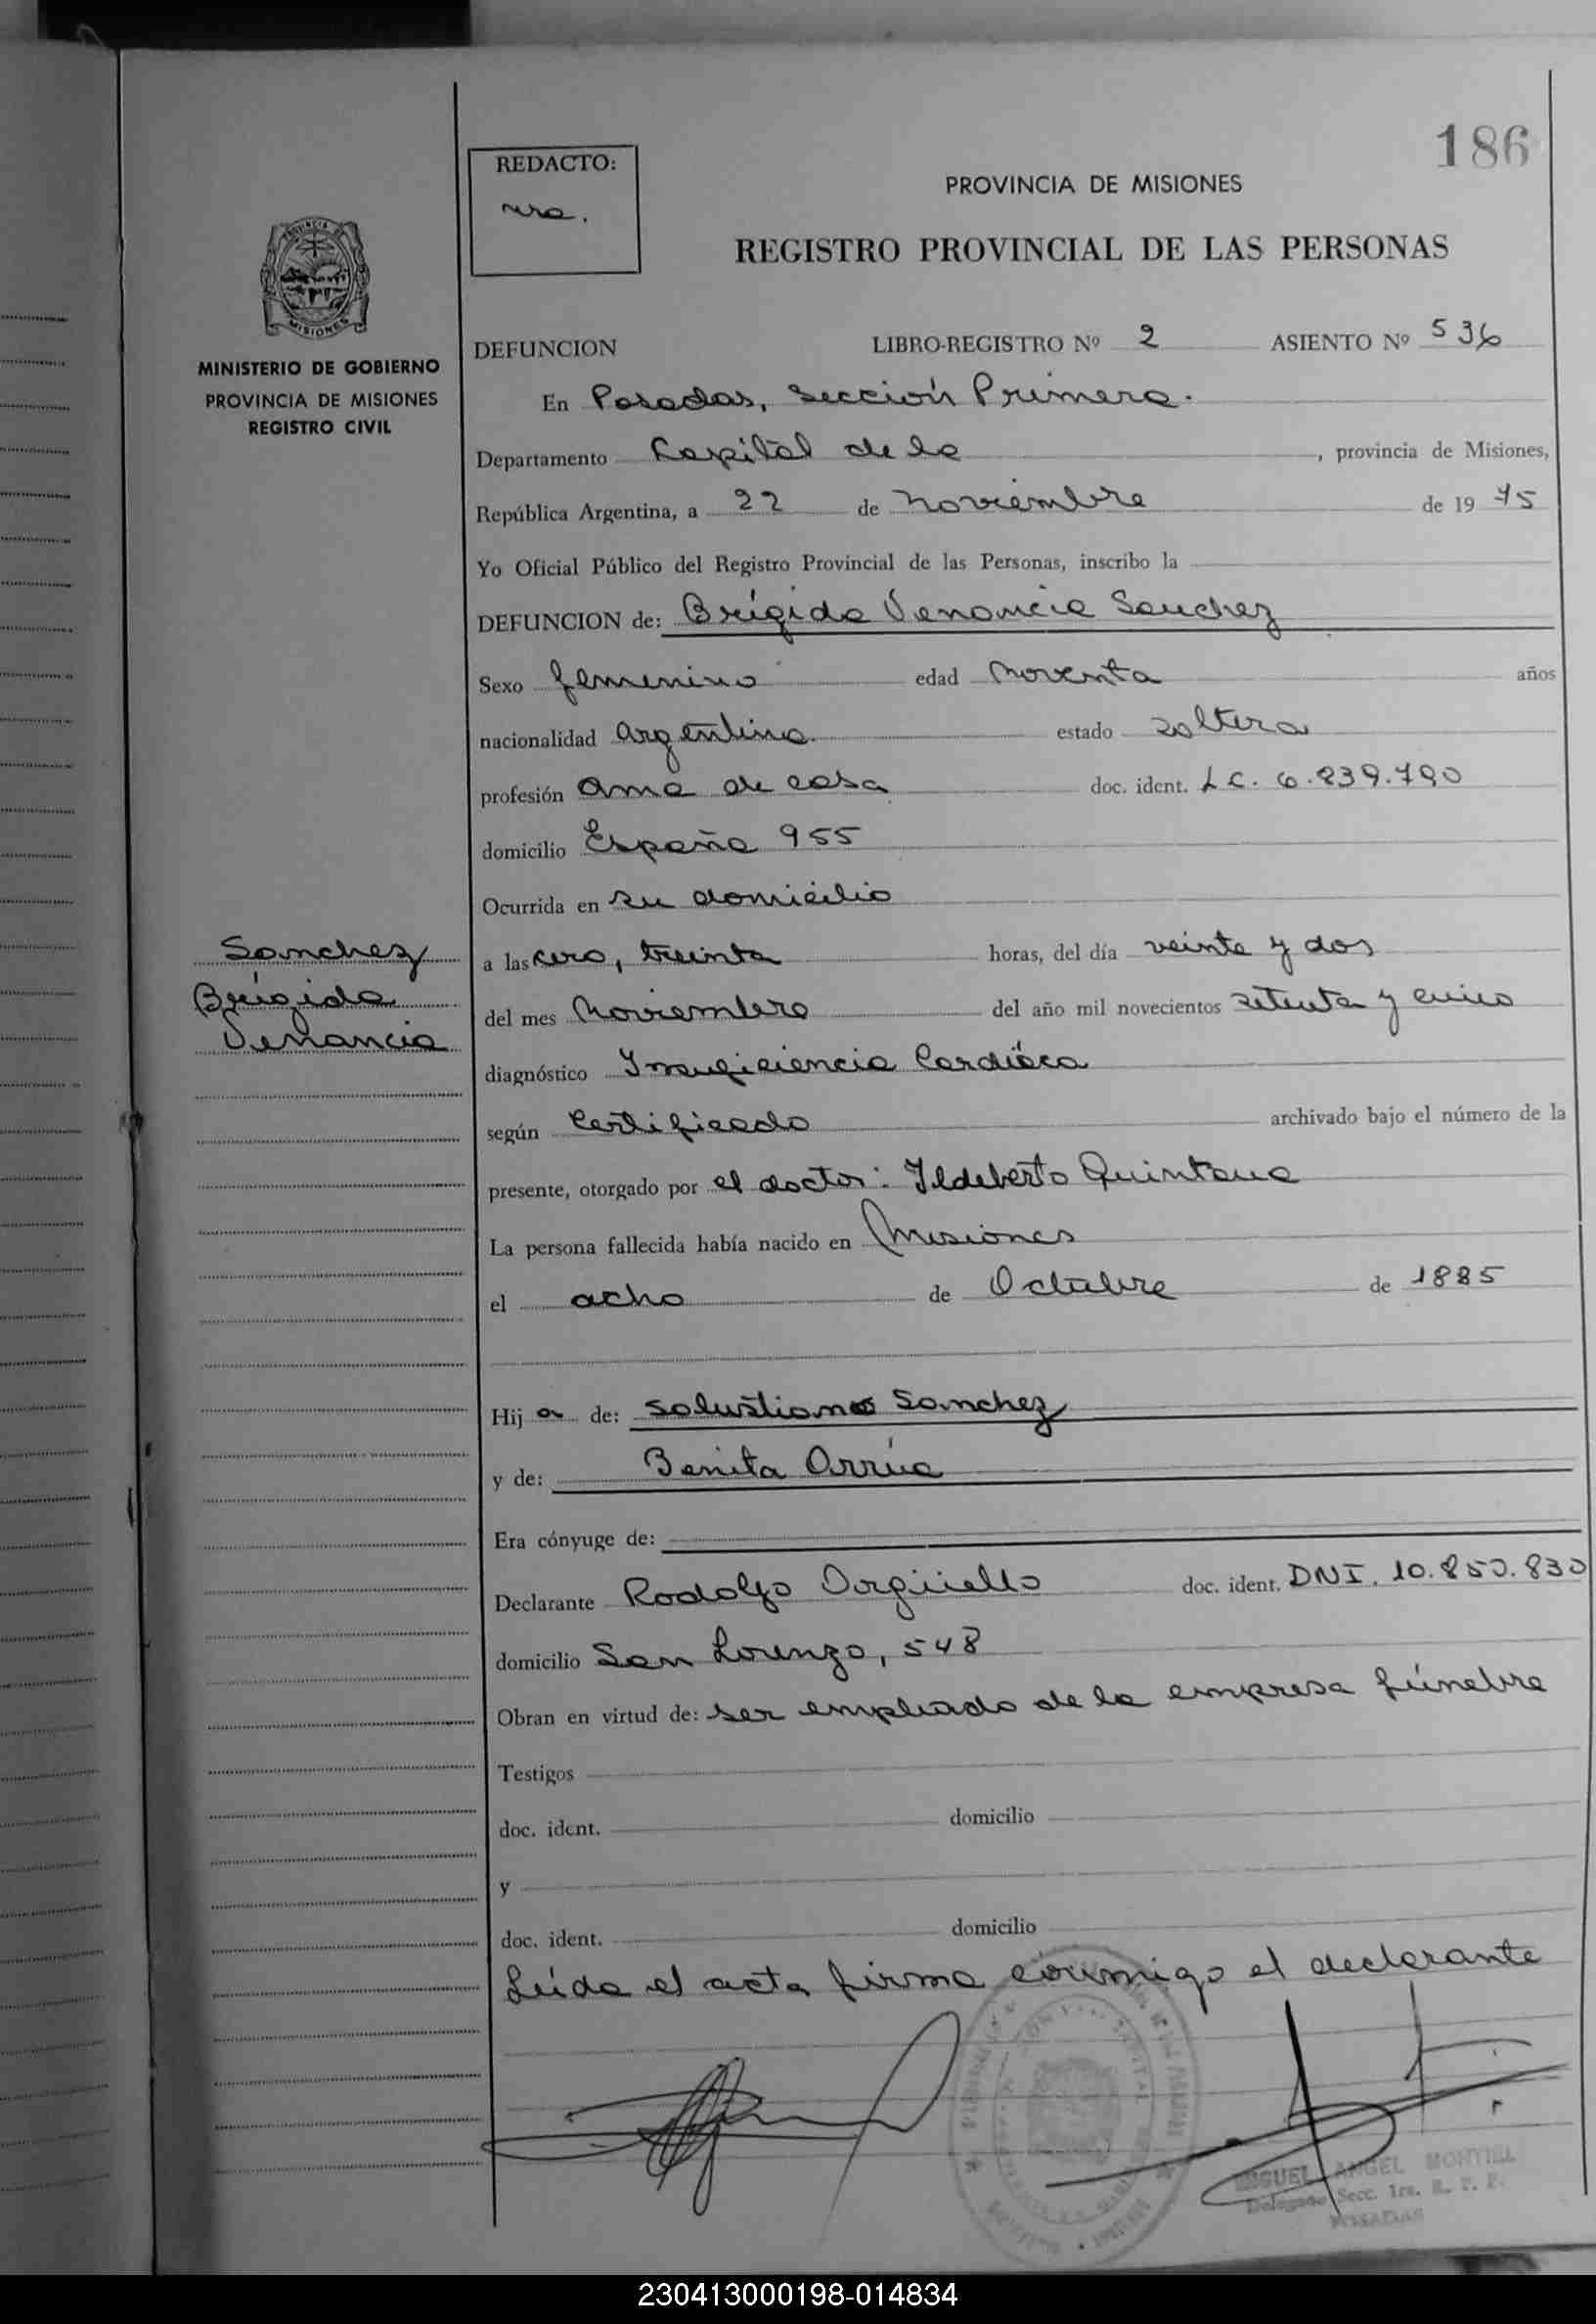 186
REDACTO:
nra.
PROVINCIA DE MISIONES
REGISTRO PROVINCIAL DE LAS PERSONAS
PROVINCIA DE
MISIONES
MINISTERIO DE GOBIERNO
PROVINCIA DE MISIONES
REGISTRO CIVIL
DEFUNCION LIBRO-REGISTRO Nº 2 ASIENTO Nº 536
En Posadas, Sección Primera.
Departamento Capital de la , provincia de Misiones,
República Argentina, a 22 de noviembre de 19 75
Yo Oficial Público del Registro Provincial de las Personas, inscribo la
DEFUNCION de: Brígida Venancia Sanchez
Sexo femenino edad noventa años
nacionalidad argentina. estado soltera
profesión ama de casa doc. ident. L.C. 6.839.790
domicilio España 955
Ocurrida en su domicilio
Sanchez
Brígida
Venancia
a las cero, treinta horas, del día veinte y dos
del mes Noviembre del año mil novecientos setenta y cinco
diagnóstico Insuficiencia Cardíaca
según Certificado archivado bajo el número de la
presente, otorgado por el doctor: Ildeberto Quintana
La persona fallecida había nacido en Misiones
el ocho de Octubre de 1885
Hij a de: Solustiano Sanchez
y de: Benita Arrúa
Era cónyuge de:
Declarante Rodolfo Argüello doc. ident. DNI. 10.850.830
domicilio San Lorenzo, 548
Obran en virtud de: ser empleado de la empresa fúnebre
Testigos
doc. ident. domicilio
y
doc. ident. domicilio
Leída el acta firma conmigo el declarante
MIGUEL ANGEL MONTIEL
Delegado Secc. 1ra. R. P. P.
POSADAS
230413000198-014834